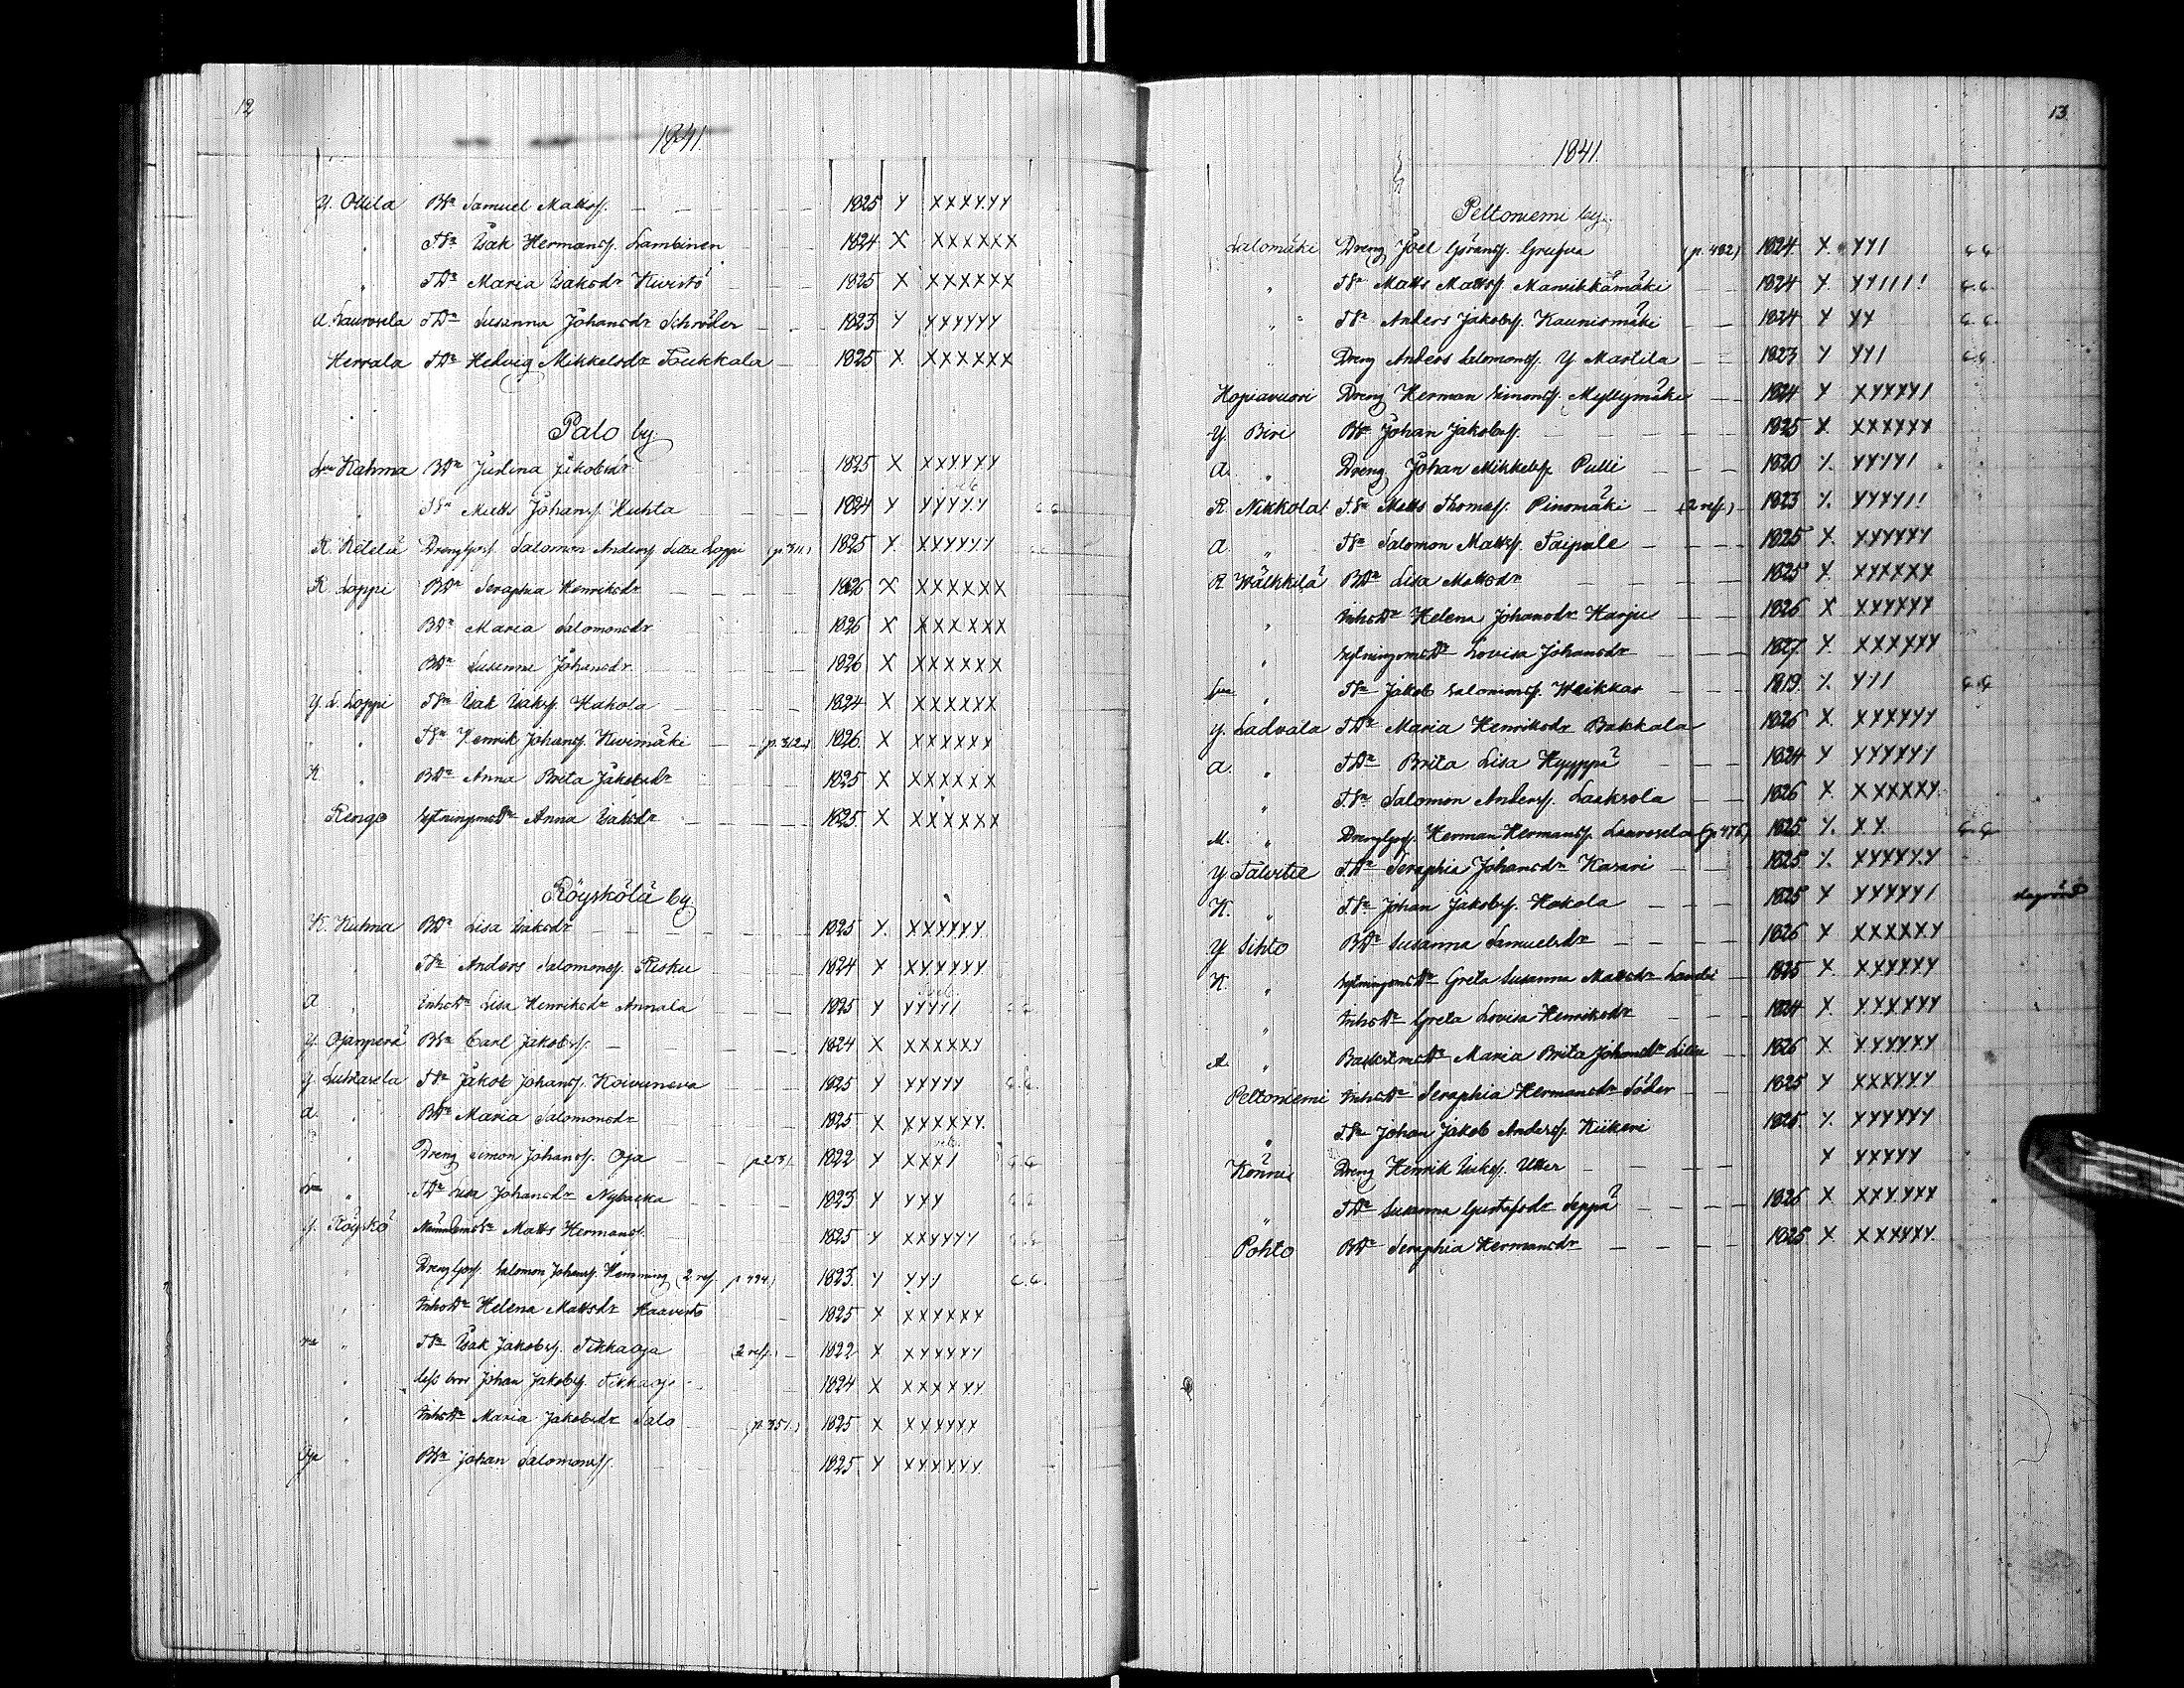 12
1841.
Y. Ollila BSn Samuel Mattsf. 1825 Y XXXYYY
" TSn Isak Hermansf. Lambinen 1824 X XXXXXX
" TDr Maria Isaksdr Kivistö 1825 X XXXXXX
A. Laurosela TDr Susanna Johansdr Schröder 1823 Y YXYYYY
Herrala TDr Hedvig Mikkelsdr Tukkala 1825 X XXXXXX
Palo by.
Kahma BDr Judina Jakobsdr 1825 X XXYYYY
" TSn Matts Johansf. Kuhta 1824 Y YYYYY
R. Ketelä Drenggoss. Salomon Andersf. Loppi (p. 311.) 1825 Y XXYYYY
R. Loppi BDr Seraphia Henriksdr 1826 X XXXXXX
" BDr Maria Salomonsdr 1826 X XXXXXX
" BDr Susanna Johansdr 1826 X XXXXXX
Y. L. Loppi TSn Isak Isaksf. Hakola 1824 X XXXXXX
" " TSn Henrik Johansf. Kivimäki (p. 312.) 1826 X XXXXXX
K. " BDr Anna Brita Jakobsdr 1825 X XXXXXX
Rengo Sytningsms Dr Anna Isaksdr 1825 X XXXXXX
Röyskölä by.
K. Kuhna BDr Lisa Isaksdr 1825 Y XXXYYY
" TSn Anders Salomonsf. Risku 1824 X XYXYYY
A " Inhs Dr Lisa Henriksdr Annala 1825 Y YYYYI
Y. Ojanperä BSn Carl Jakobsf. 1824 X XXXXXY
Y. Luhtasela TSn Jakob Johansf. Koivuneva 1825 Y XYYYY
A. " BDr Maria Salomonsdr 1825 X XXXXXY
" Dreng Simon Johansf. Oja 1822 Y XXXI
" TDr Lisa Johansdr Nybacka 1823 Y YYY
Y. Röyskö Nämndems Sn Matts Hermansf. 1825 Y XXYYYY
" Drenggoss. Salomon Johansf. Hemming (2 ref. p 494.) 1823 Y YYY
" Inhs Dr Helena Mattsdr Haavisto 1825 X XXYXXX
" TSn Isak Jakobsf. Tikkaoja (2 ref.) 1822 X XYXYYY
" dess bror Johan Jakobsf. Tikkaoja 1824 X XXXXYY
" Inhs Dr Maria Jakobsdr Salo (p. 351.) 1825 X XYXXYX
" BSn Johan Salomonsf. 1825 Y XXYXYY
13
1841.
Peltoniemi by.
Salomäki Dreng Joel Göransf. Grufva (p. 482) 1824 X YYI
" TSn Matts Mattsf. Mansikkamäki 1824 Y YYIIII
" TSn Anders Jakobsf. Kaunismäki 1824 Y YY
" Dreng Anders Salomonsf. Y Martila 1823 Y YYI
Hopiavuori Dreng Herman Simonsf. Myllymäki 1824 Y XYXXYI
Y. Biri BSn Johan Jakobsf. 1825 X XXXXXX
A. " Dreng Johan Mikkelsf. Pulli 1820 Y YYIYI
R. Nikkola TSn Matts Thomasf. Pinomäki (2 ref.) 1823 Y YYXYII
A. " TSn Salomon Mattsf. Taipale 1825 X XYYYYY
R. Wälkkilä BDr Lisa Mattsdr 1825 Y XYXXXX
" Inhs Dr Helena Johansdr Harju 1826 X XXYXYY
" Sytningsms Dr Lovisa Johansdr 1827 X XXXXYY
" TSn Jakob Salomonsf. Weikkas 1819 Y YII
Y. Ladvala TDr Maria Henriksdr Bakkala 1826 X XYXYYY
A. " TDr Brita Lisa Hyyppä 1824 Y YYYYYY
" TSn Salomon Andersf. Laaksola 1826 X XXXXXY
M. " Drenggoss. Herman Hermansf. Laurosela (p. 476) 1825 Y XX
Y Talvitie TDr Seraphia Johansdr Kasari 1825 Y XYXYYY
K. " TSn Johan Jakobsf. Hakola 1825 Y YXYYYI
Y Sihto BDr Susanna Samuelsdr 1826 Y XXXXXY
K. " Sytningsms Dr Greta Susanna Mattsdr 1825 X XXYYYY
" Inhs Dr Greta Lovisa Henriksdr 1824 X YXYXYY
A. " Dr Maria Brita Johansdr 1826 X YYXYXY
Peltoniemi Inhs Dr Seraphia Hermansdr Söder 1825 Y XXXYYY
" TSn Johan Jakob Andersf. Kiikeri 1825 Y XYYXYY
Könni Dreng Henrik Isaksf. Utter X XXYYY
" TDr Susanna Gustafsdr Seppä 1826 X XXYXYX
Pohto BDr Seraphia Hermansdr 1825 X XXXXYY